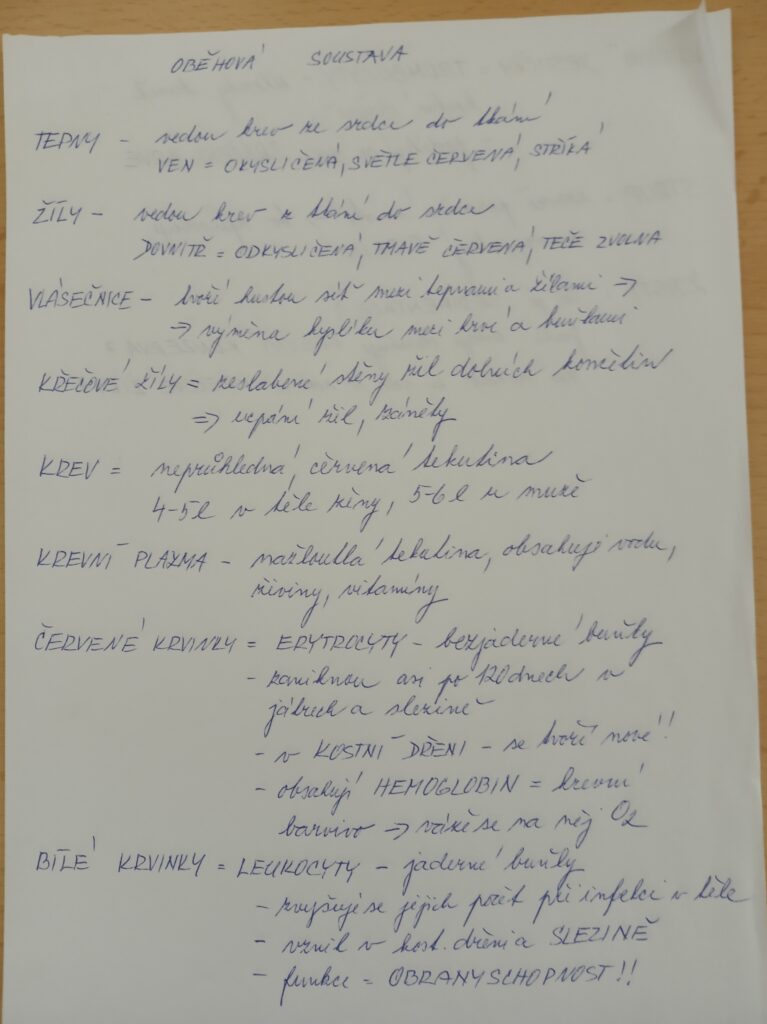 OBĚHOVÁ SOUSTAVA
TEPNY - vedou krev ze srdce do tkání
VEN = OKYSLIČENÁ, SVĚTLE ČERVENÁ, STŘÍKÁ
ŽÍLY - vedou krev z tkání do srdce
DOVNITŘ = ODKYSLIČENÁ, TMAVĚ ČERVENÁ, TEČE ZVOLNA
VLÁSEČNICE - tvoří hustou síť mezi tepnami a žílami ⇒
⇒ výměna kyslíku mezi krví a buňkami
KŘEČOVÉ ŽÍLY = zeslabené stěny žil dolních končetin
⇒ ucpání žil, záněty
KREV = neprůhledná, červená tekutina
4-5l v těle ženy, 5-6l u muže
KREVNÍ PLAZMA - nažloutlá tekutina, obsahuje vodu,
živiny, vitamíny
ČERVENÉ KRVINKY = ERYTROCYTY - bezjaderné buňky
- zaniknou asi po 120 dnech v
játrech a slezině
- v KOSTNÍ DŘENI - se tvoří nové!!
- obsahují HEMOGLOBIN = krevní
barvivo → váže se na něj O2
BÍLÉ KRVINKY = LEUKOCYTY - jaderné buňky
- zvyšuje se jejich počet při infekci v těle
- vznik v kost. dřeni a SLEZINĚ
- funkce = OBRANYSCHOPNOST!!